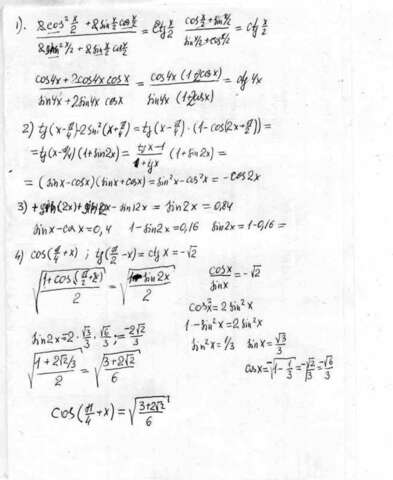 1). (2cos² x/2 + 2sin x/2 cos x/2) / (2sin² x/2 + 2sin x/2 cos x/2) = ctg x/2 (cos x/2 + sin x/2) / (sin x/2 + cos x/2) = ctg x/2
(cos4x + 2cos4x cosx) / (sin4x + 2sin4x cosx) = (cos4x (1+2cosx)) / (sin4x (1+2cosx)) = ctg 4x
2) tg(x-π/4)·2sin²(x+π/4) = tg(x-π/4)·(1-cos(2x+π/2)) =
= tg(x-π/4)(1+sin2x) = (tgx-1)/(1+tgx) (1+sin2x) =
= (sinx-cosx)(sinx+cosx) = sin²x-cos²x = -cos2x
3) sin2x = sin2x = 0,84
sinx-cosx = 0,4 1-sin2x = 0,16 sin2x = 1-0,16 =
4) cos(π/4+x) ; tg(π/2-x) = ctgx = -√2
√((1+cos(π/2+2x))/2) = √((1-sin2x)/2) cosx/sinx = -√2
cos²x = 2sin²x
1-sin²x = 2sin²x
sin2x = -2·√3/3·√6/3 = -2√2/3 sin²x = 1/3 sinx = √3/3
√((1+2√2/3)/2) = √((3+2√2)/6) cosx = -√(1-1/3) = -√2/√3 = -√6/3
cos(π/4+x) = √((3+2√2)/6)